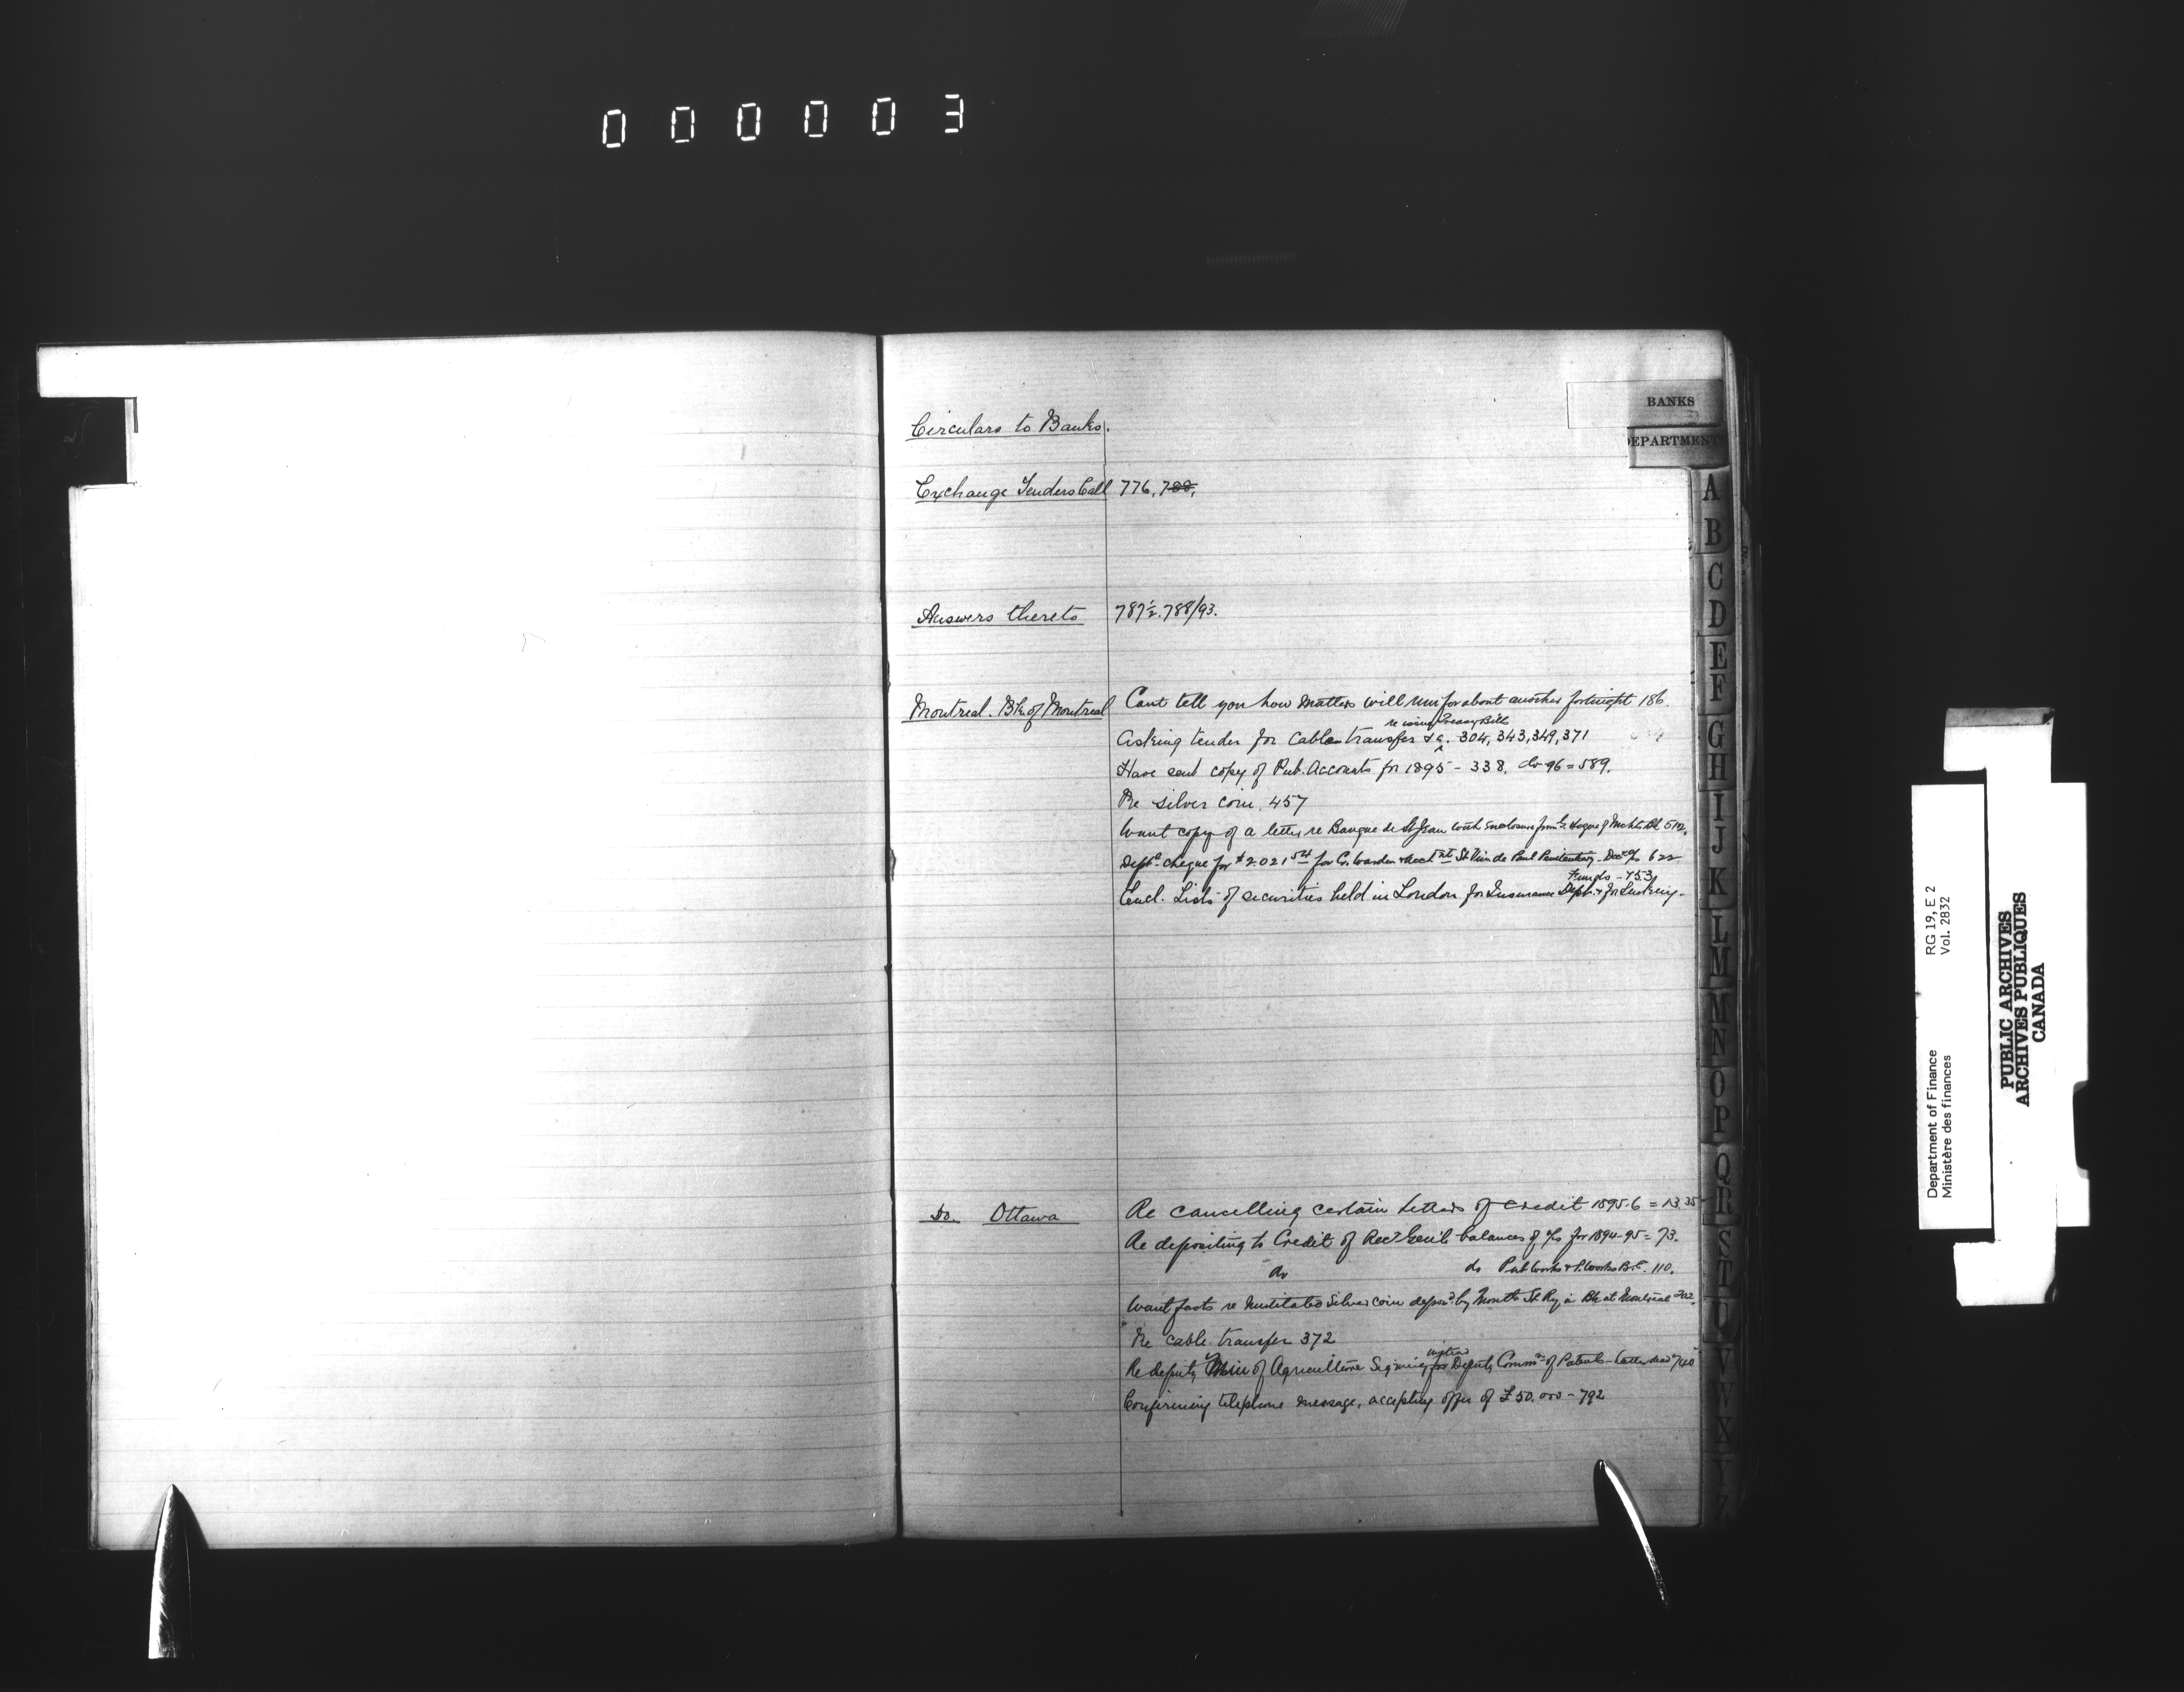 000003
BANKS
DEPARTMENT
Circulars to Banks.
Exchange Tenders Call 776, 788,
Answers thereto 787½. 788/93.
Montreal. Bk. of Montreal Cant tell you how matters will run for about another fortnight 186.
re issuing Treasury Bills
Asking tender for Cable transfer &c. 304, 343, 349, 371
Have sent copy of Pub. Accounts for 1895 - 338. do 96 = 589.
Re silver coin. 457
Want copy of a letter re Banque de St Jean with enclosure from G. Hague of Mchts Bk 512.
Dept. cheque for $2021 54 for G. Warden & Acct St Vin de Paul Penitentiary - 622
Funds - 753
Encl. Lists of securities held in London for Insurance Dept. & for Sinking
Do. Ottawa Re cancelling certain Letters of Credit 1895-6 = 13, 35
Re depositing to Credit of Rec Genl balances of for 1894-95 = 73.
do do Pub Works & P. Works B.C. 110.
Want facts re mutilated Silver coin depos'd by Montl St. Ry in Bk at Montreal 202.
Re cable transfer 372
Re deputy Min of Agriculture Signing Deputy Commr of Patents 740
Confirming telephone message, accepting offer of £50.000 - 792
A
B
C
D
E
F
G
H
I
J
K
L
M
M
N
O
P
Q
R
S
T
U
V
W
X
Y
Z
Department of Finance RG 19, E 2
Ministère des finances Vol. 2832
PUBLIC ARCHIVES
ARCHIVES PUBLIQUES
CANADA